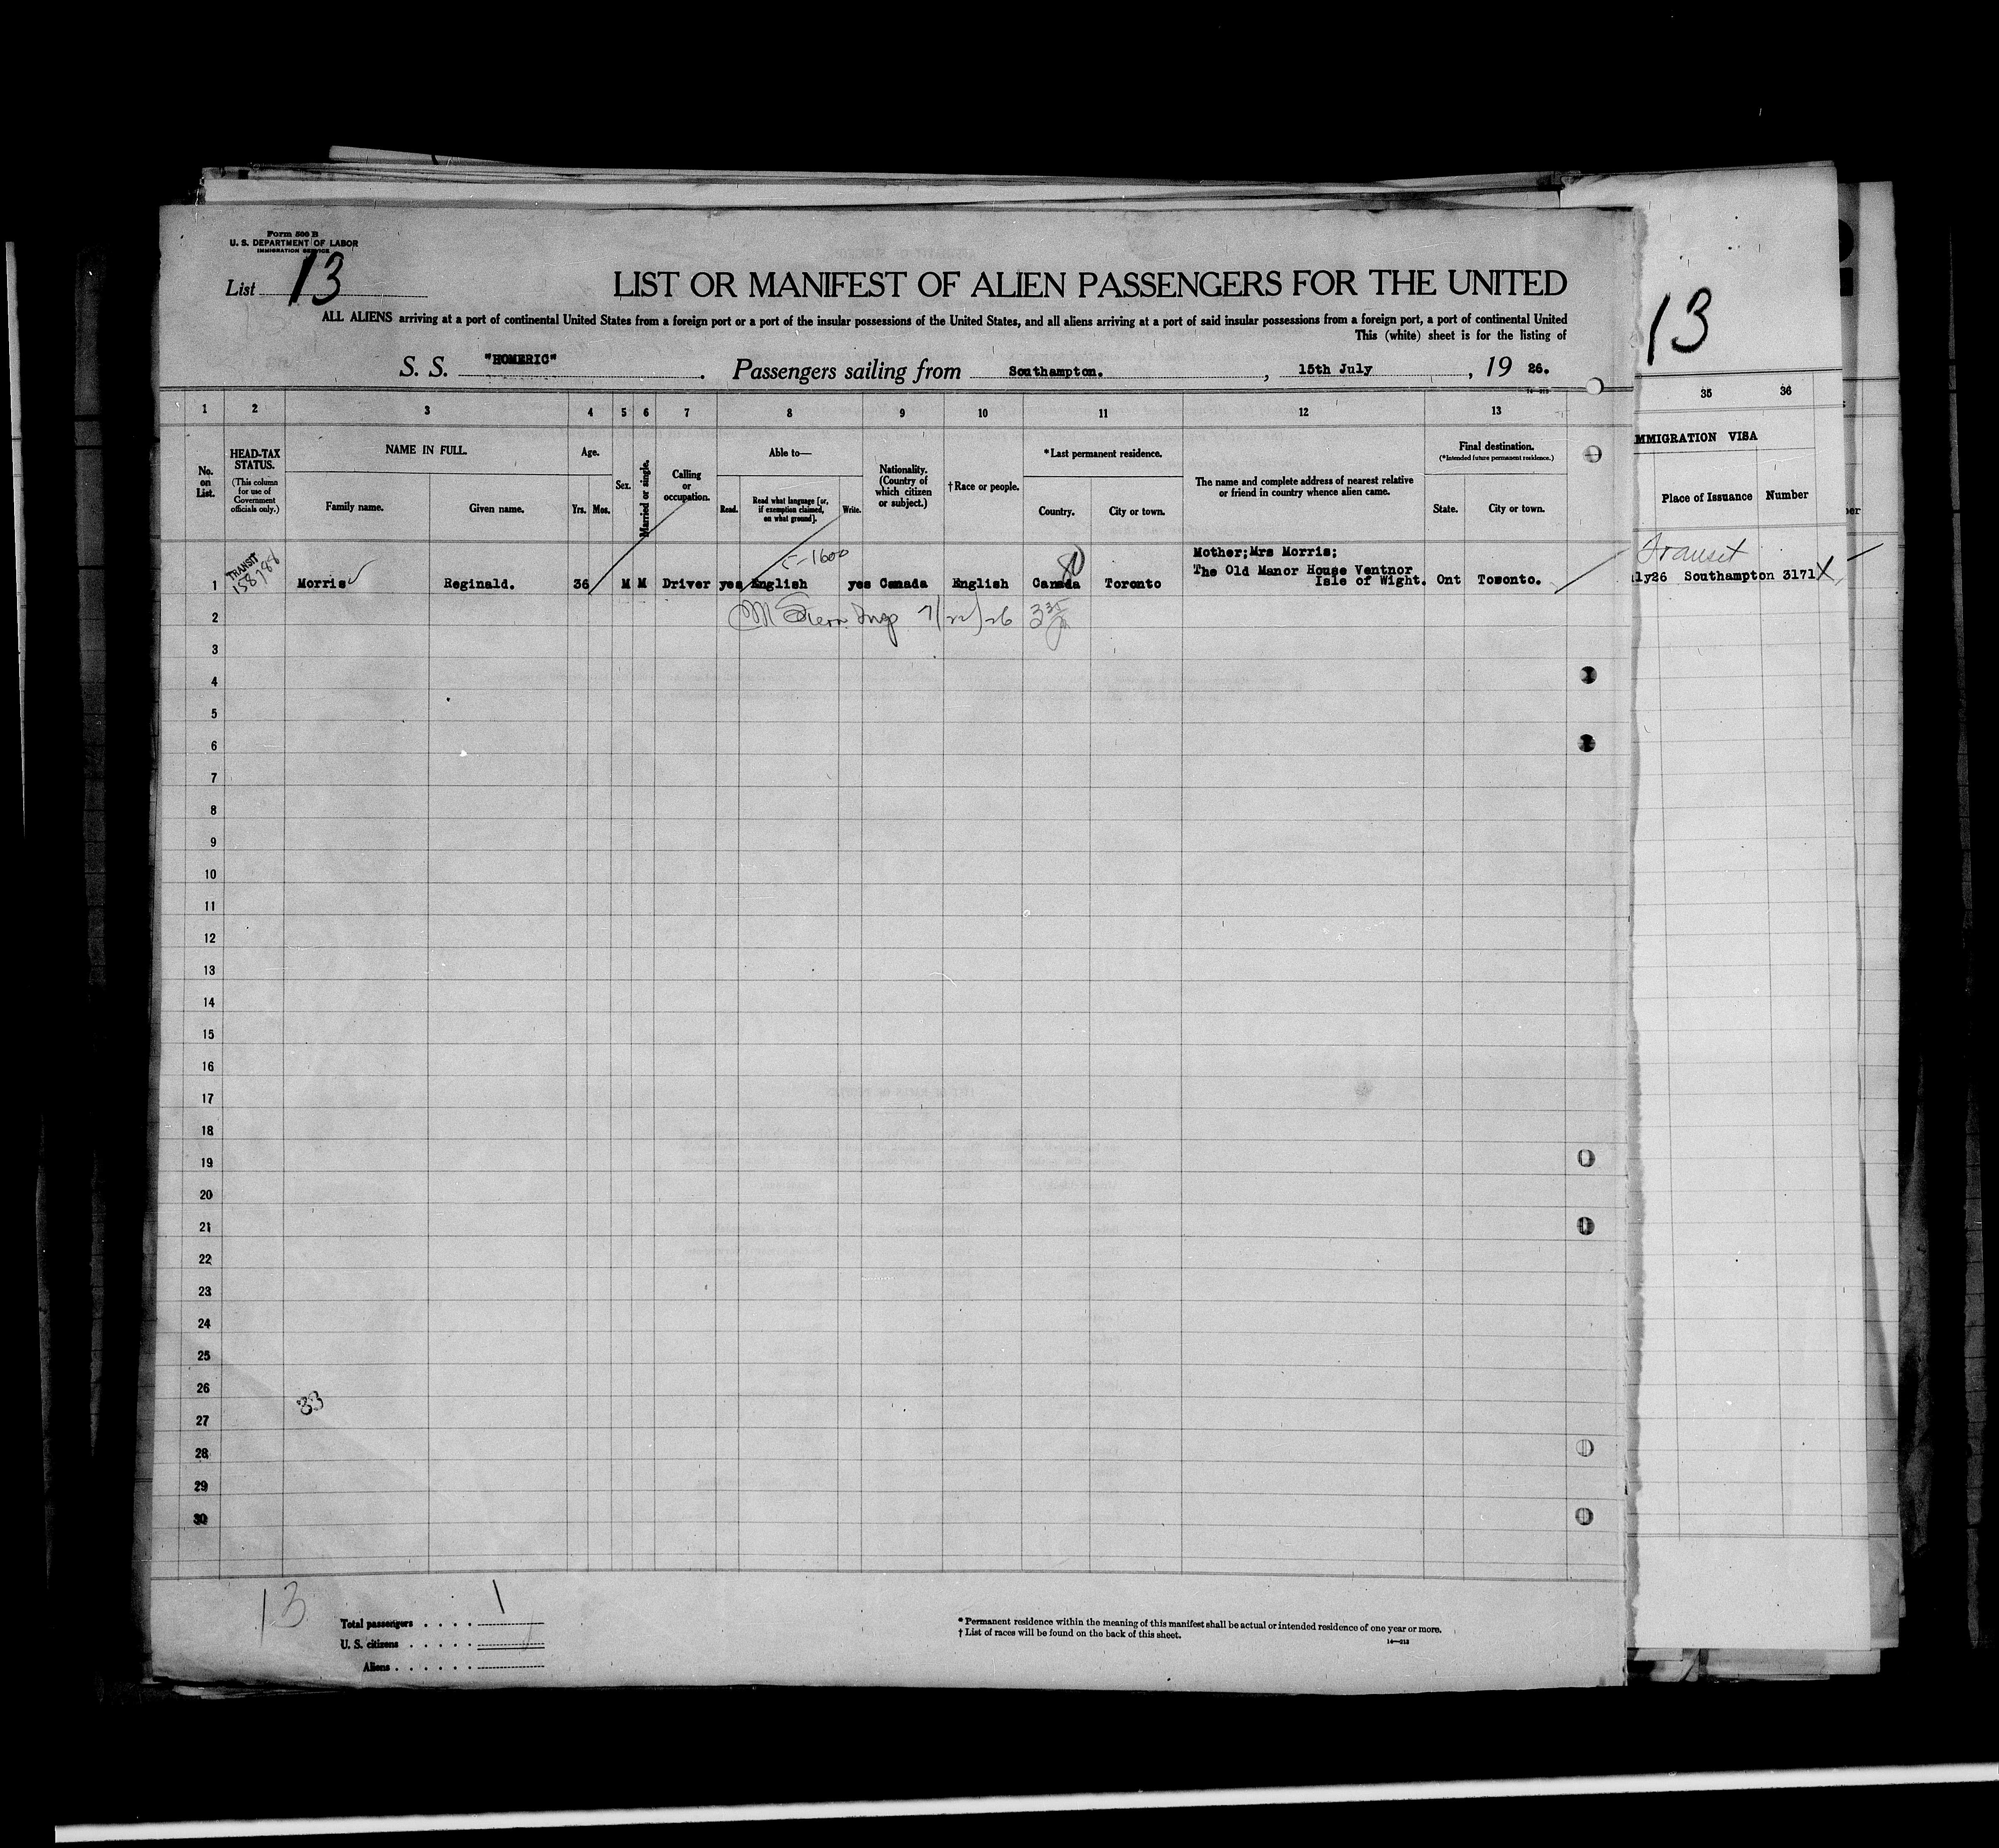 Form 500 B
U. S. DEPARTMENT OF LABOR
IMMIGRATION SERVICE
List 13
LIST OR MANIFEST OF ALIEN PASSENGERS FOR THE UNITED
ALL ALIENS arriving at a port of continental United States from a foreign port or a port of the insular possessions of the United States, and all aliens arriving at a port of said insular possessions from a foreign port, a port of continental United
This (white) sheet is for the listing of
S. S. "HOMERIC". Passengers sailing from Southampton. , 15th July , 19 26.
13
1 2 3 4 5 6 7 8 9 10 11 12 13
35 36
No. on List.
HEAD-TAX STATUS.
(This column for use of Government officials only.)
NAME IN FULL.
Family name. Given name.
Age.
Yrs. Mos.
Sex.
Married or single.
Calling or occupation.
Able to—
Read. Read what language [or, if exemption claimed, on what ground]. Write.
Nationality. (Country of which citizen or subject.)
†Race or people.
*Last permanent residence.
Country. City or town.
The name and complete address of nearest relative or friend in country whence alien came.
Final destination.
(*Intended future permanent residence.)
State. City or town.
MMIGRATION VISA
Place of Issuance Number
TRANSIT
158788
5-1600
Transit
Mother;Mrs Morris;
The Old Manor House Ventnor
Isle of Wight.
1 Morris Reginald. 36 M M Driver yes English yes Canada English Canada Toronto Ont Toronto.
ly26 Southampton 3171
2
3
4
5
6
7
8
9
10
11
12
13
14
15
16
17
18
19
20
21
22
23
24
25
26
33
27
28
29
30
13
Total passengers . . . . 1
U. S. citizens . . . . .
Aliens . . . . . .
* Permanent residence within the meaning of this manifest shall be actual or intended residence of one year or more.
† List of races will be found on the back of this sheet.
14—213